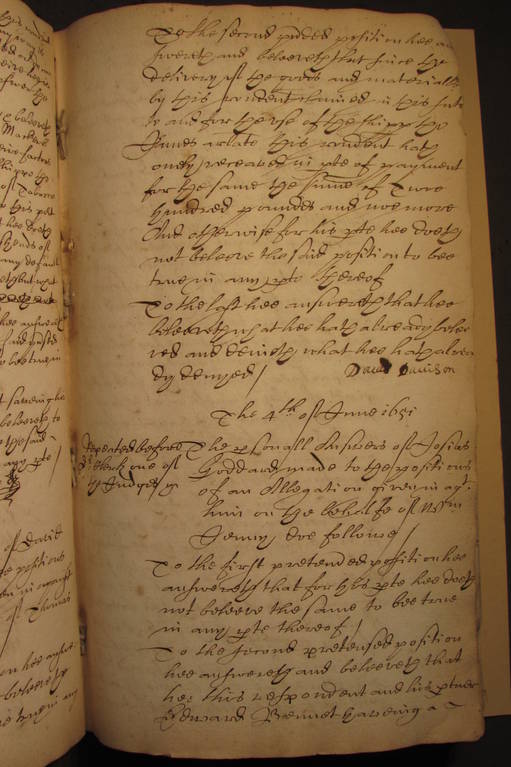 To the second pnded position hee an
swereth and beleeveth that since the
delivery of the goods and materialls
by this rondent claimed in this suite
to and for the use of the shipp the
Annes arlate this rondent hath
onely receaved in pte of payment
for the same the summe of Two
hundred poundes and noe more
And otherwise for his pte hee doeth
not beleeve the said position to bee
true in any pte thereof
To the last hee answereth that hee
beleeveth what hee hath already belee
ved and denieth what hee hath alrea
dy denyed /
David Davison
The 4th of June 1651
Repeated before
Dr Clerk one of
the Judges
The psonall Answers of Josias
Goddard made to the positions
of an Allegation given in agt
him on the behalfe of Wm
Jenny, doe followe /
To the first pretended position hee
answereth that for his pte hee doeth
not beleeve the same to bee true
in any pte thereof /
To the second pretensed position
hee answereth and beleeveth that
hee this respondent and his ptner
Edward Bennet haveing a